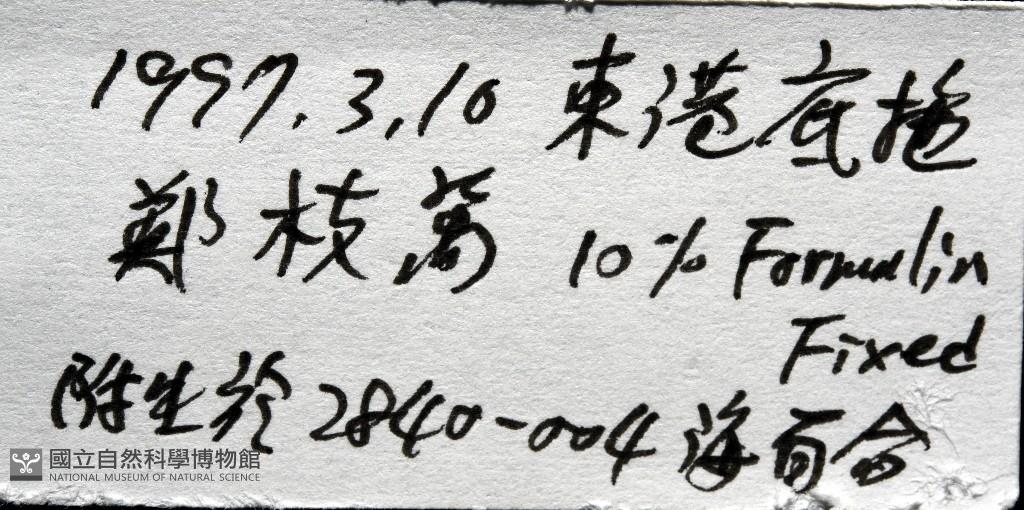 1997.3,10 東港底拖
鄭枝萬 10% Formulin
Fixed
附生於 2840-004 海百合
國立自然科學博物館
NATIONAL MUSEUM OF NATURAL SCIENCE